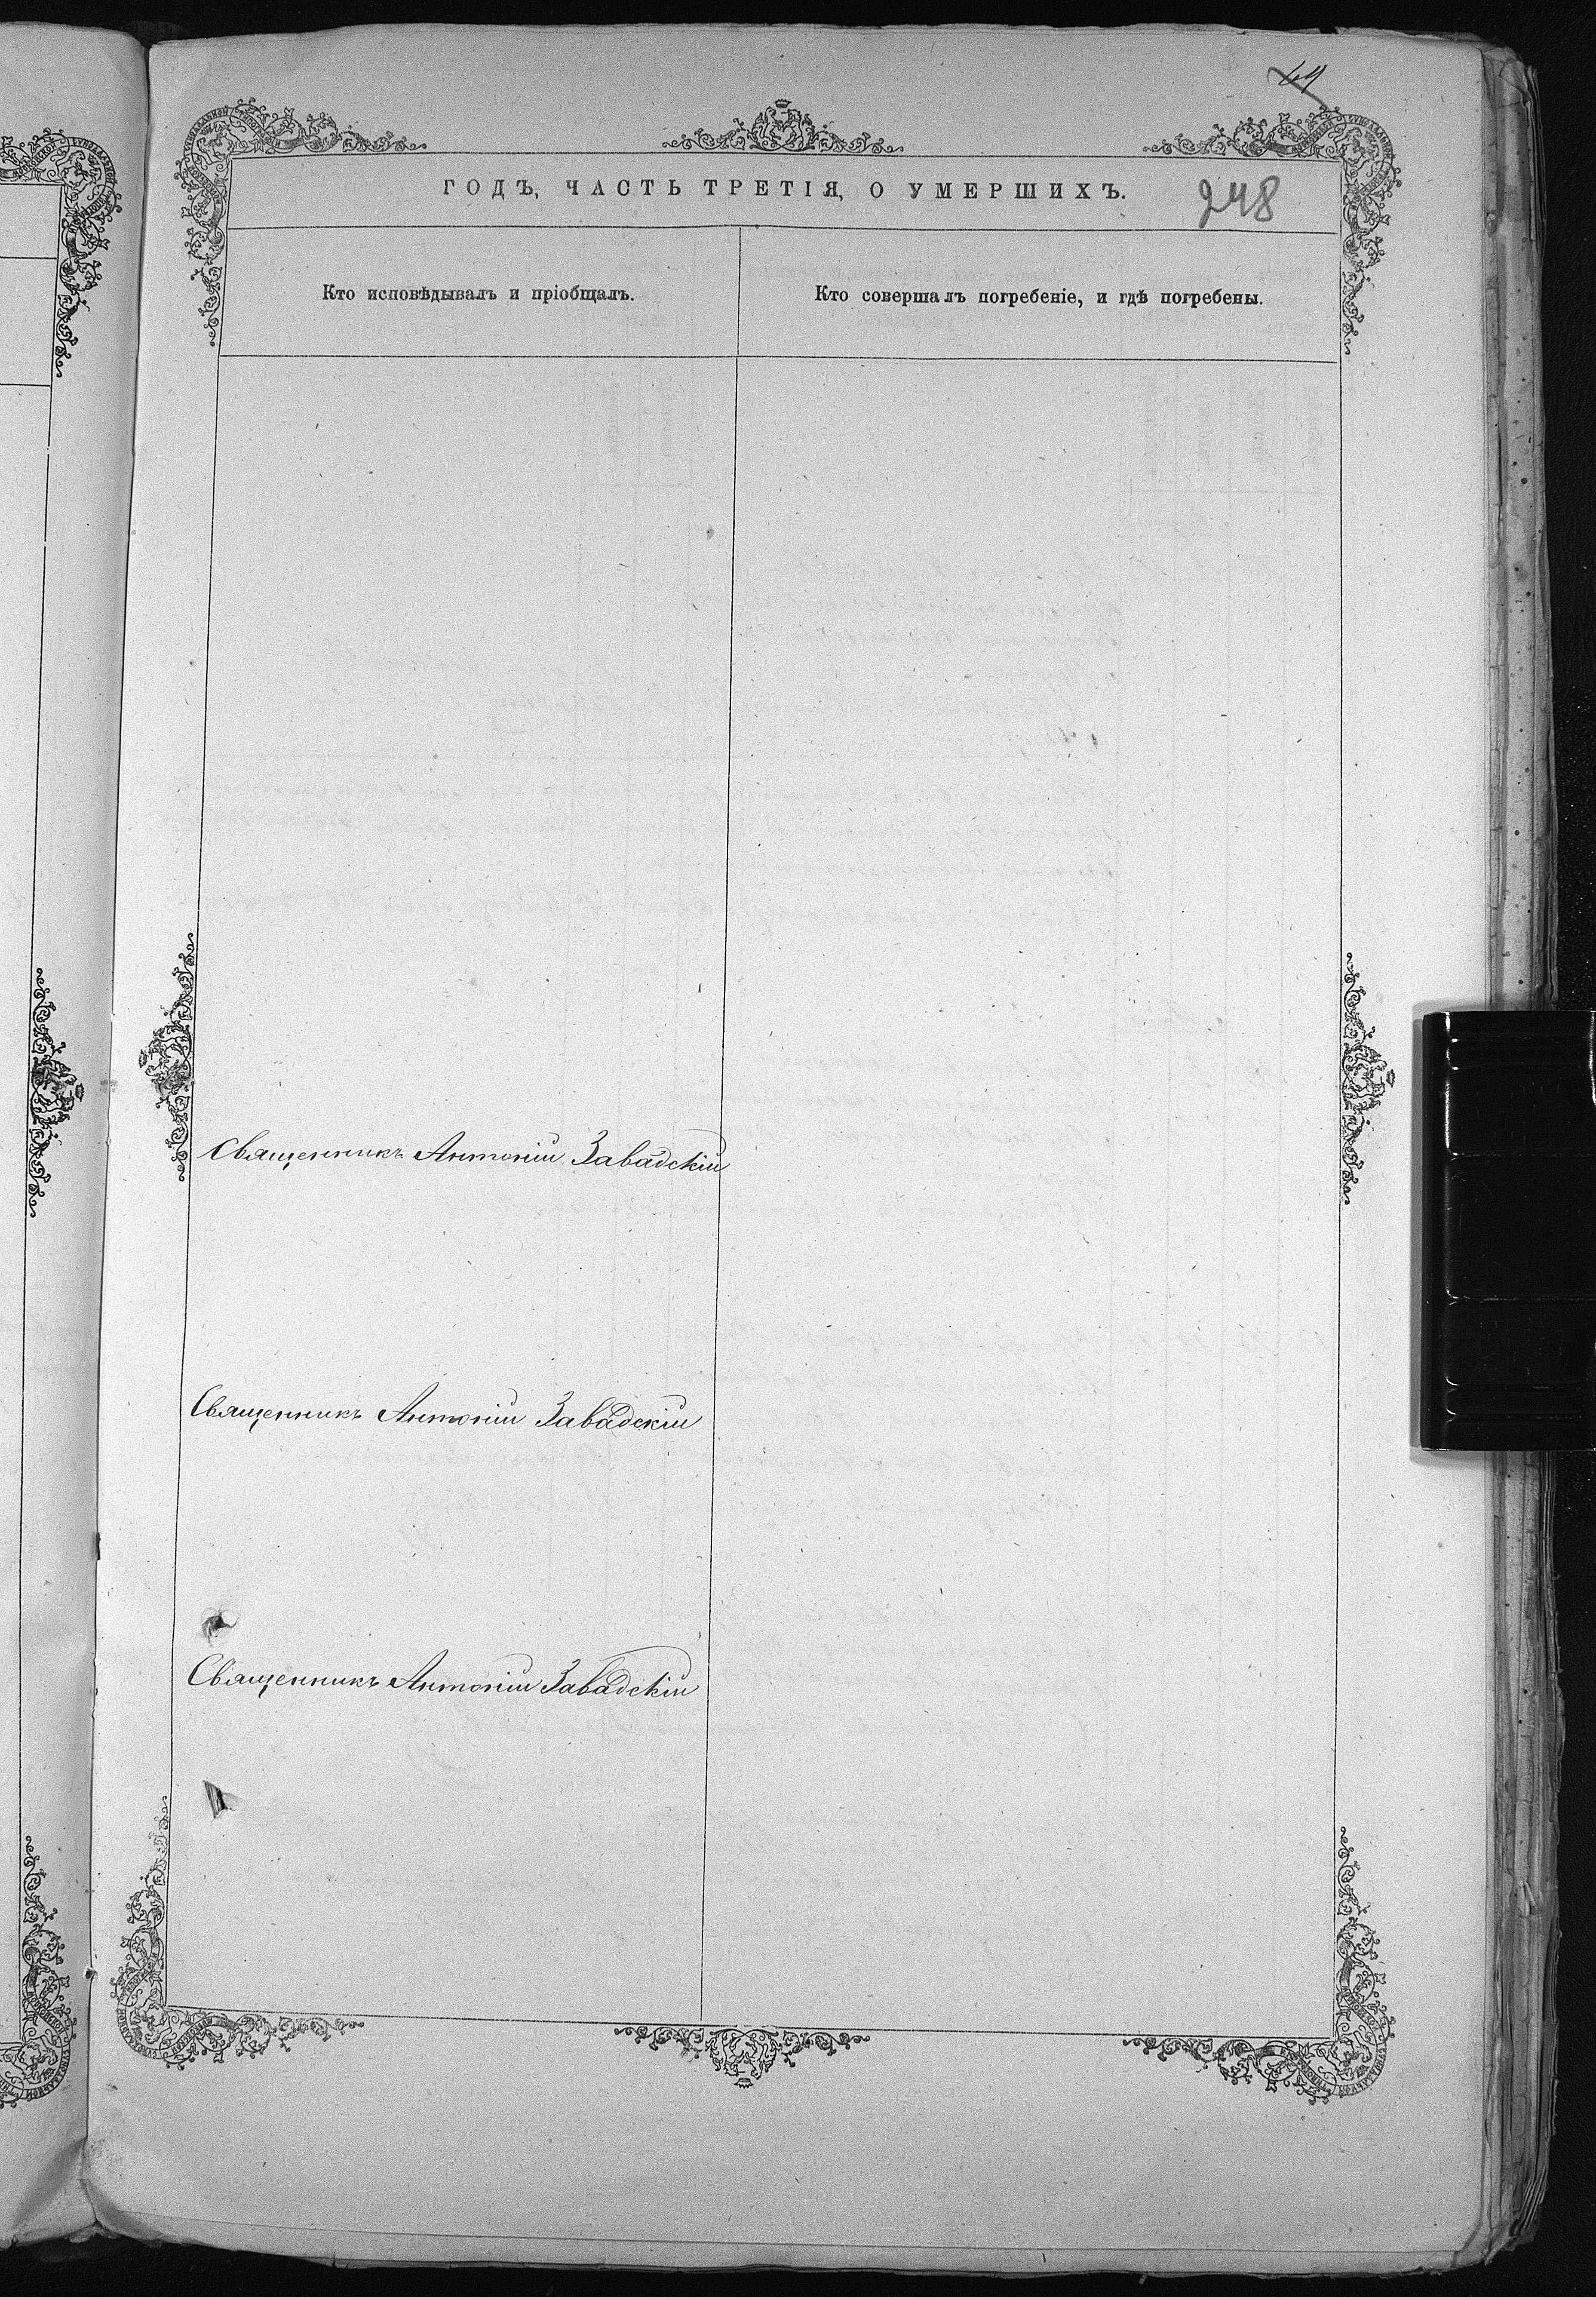 69
ГОДЪ, ЧАСТЬ ТРЕТІЯ, О УМЕРШИХЪ.
248
Кто исповѣдывалъ и пріобщалъ.
Кто совершалъ погребеніе, и гдѣ погребены.
Священникъ Антоній Завадскій
Священникъ Антоній Завадскій
Священникъ Антоній Завадскій